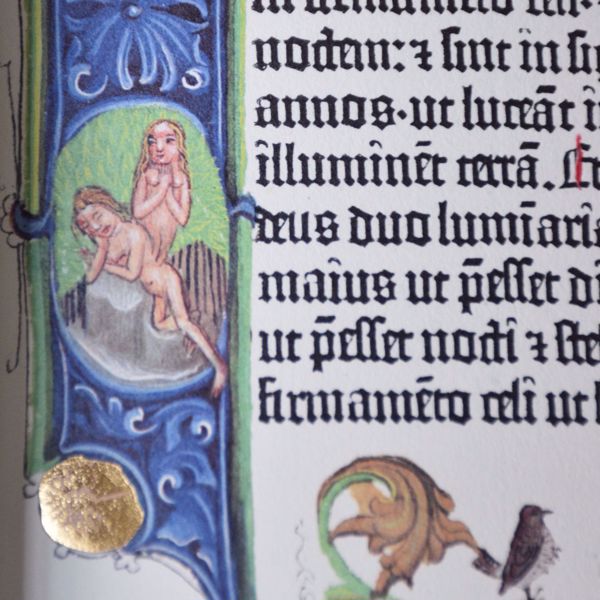 in firmamēto celi·
noctem: ⁊ sint in si
annos·ut luceāt i
illuminēt terrā. Et
deus duo lumīaria
maius ut p̄esset di
ut p̄esset nocti ⁊ stel
firmamēto celi ut l